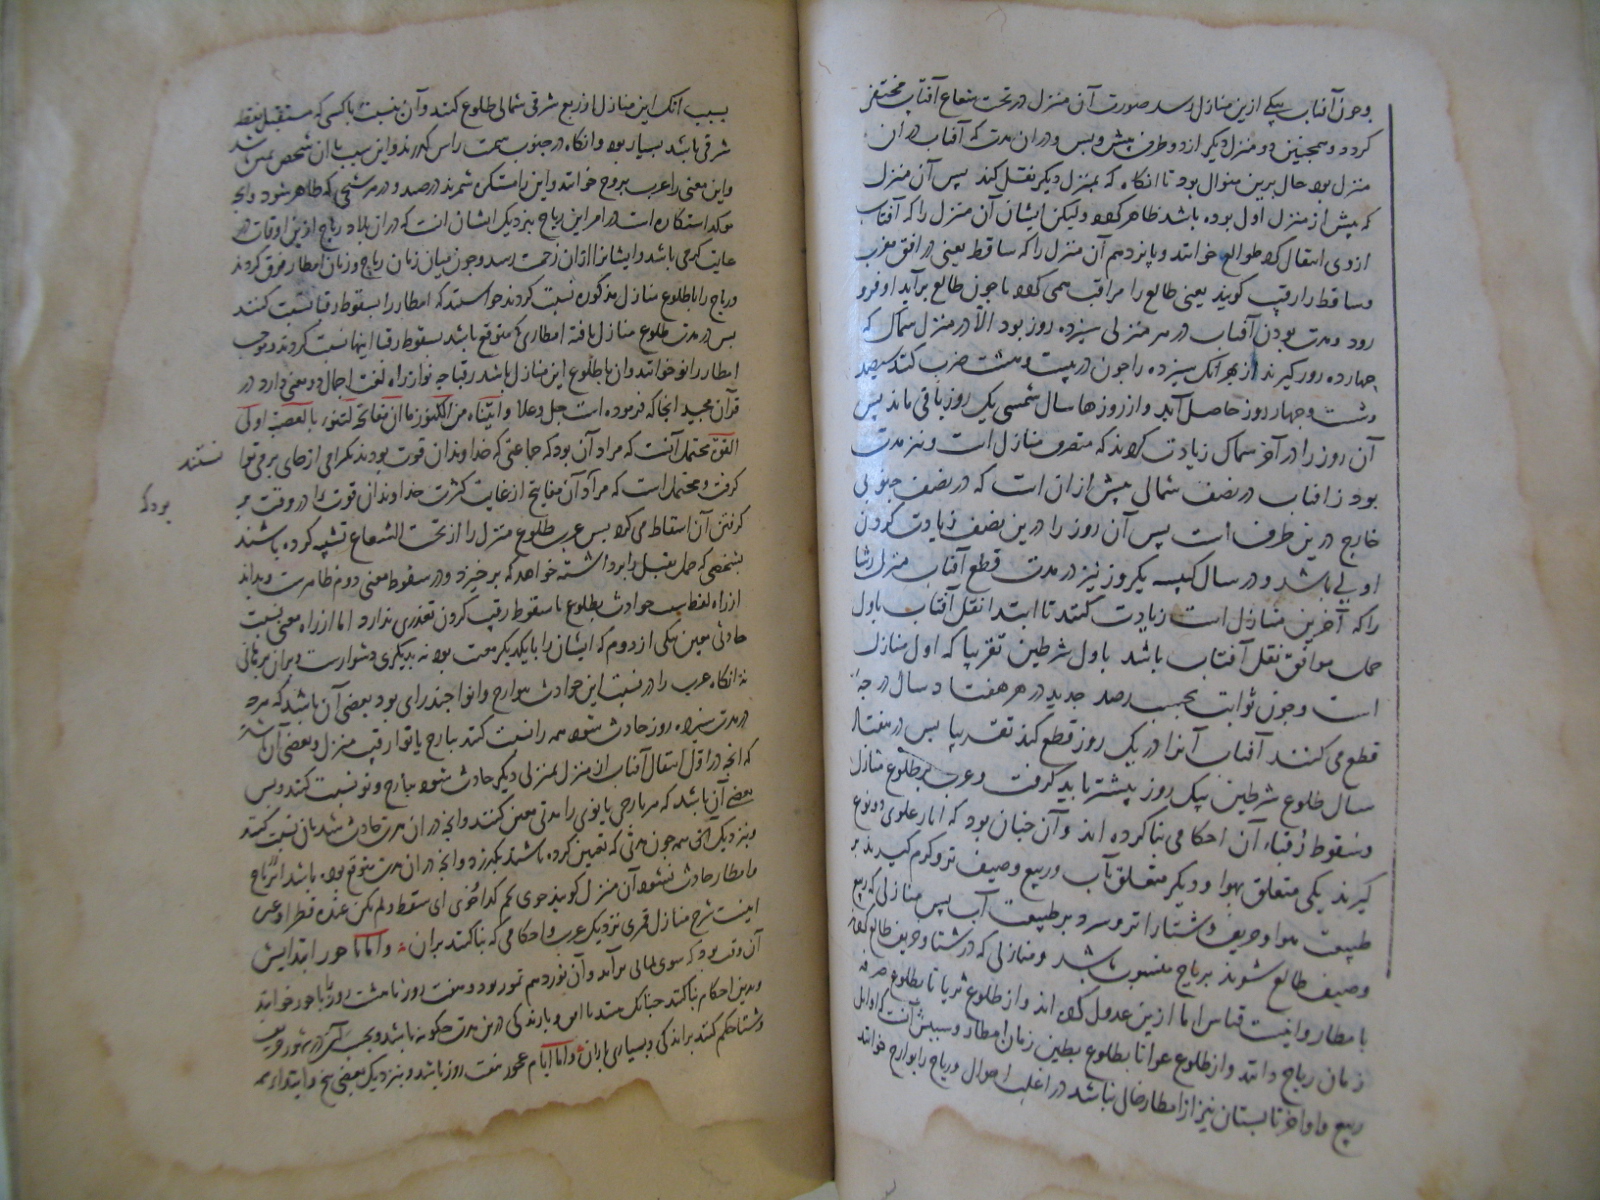 وچون آفتاب بیکی ازین منازل رسد صورت آن منزل در تحت شعاع آفتاب مختفی
کردد وهمچنین دو منزل دیگر از دو طرف پیش و پس و در ان مدت که آفتاب در ان
منزل بود حال برین منوال بود تا انکاه که بمنزل دیگر نقل کند پس آن منزل
که پیش از منزل اول بوده باشد ظاهر کردد ولیکن ایشان آن منزل را که آفتاب
ازوی انتقال کرد طوالع خوانند و پانزدهم آن منزل را که ساقط یعنی در افق مغرب
وساقط را رقیب کویند یعنی طالع را مراقب همی کردد تا چون طالع برآید او فرو
رود و مدت بودن آفتاب در هر منزلی سیزده روز بود الّا در منزل سماک که
چهارده روز کیرند از بهر آنک سیزده را چون در بیست و هشت ضرب کنند سیصد
وشست و چهار روز حاصل آید و از روزها سال شمسی یک روز باقی ماند پس
آن روز را در آخر سماک زیادت کردند که منتصف منازل است و نیز مدت
بودن آفتاب در نصف شمالی بیش از ان است که در نصف جنوبی
خارج درین طرف است پس آن روز را درین نصف زیادت کردن
اولی باشد و در سال کبیسه یکروز نیز در مدت قطع آفتاب منزل رشا
را که آخرین منازل است زیادت کنند تا ابتدا نقل آفتاب باول
حمل موافق نقل آفتاب باشد باول شرطین تقریبا که اول منازل
است وچون ثوابت بحسب رصد جدید در هر هفتاد سال درجهٔ
قطع می کنند آفتاب آنرا در یک روز قطع کند تقریبا پس در هفتاد
سال طلوع شرطین بیک روز پیشتر باید کرفت وعرب بر طلوع منازل
وسقوط رقباء آن احکامی بنا کرده اند وآن چنان بود که آثار علوی دو نوع
کیرند یکی متعلق بهوا و دیگر متعلق بآب و ربیع وصیف تر وکرم کیرند بر
طبیعت هوا وخریف وشتا را تر وسرد بر طبیعت آب پس منازلی که ربیع
وصیف طالع شوند بریاح منسوب باشد ومنازلی که در شتا وخریف طالع
بامطار واینست قیاس اما ازین عدول کرده اند واز طلوع ثریا تا بطلوع صرفه
زمان ریاح دانند و از طلوع عوا تا بطلوع بطین زمان امطار وسببش آنست که اوایل
ربیع واواخر تابستان نیز از امطار خالی نباشد در اغلب احوال وریاح را بوارح خوانند
بسبب آنک این منازل از ربع شرقی شمالی طلوع کنند وآن بنسبت باکسی که مستقبل نقطه
شرقی باشد بسیار بود وانکاه در جنوب سمت راس کذرند واین سبب با ان شخص
واین معنی را عرب بروح خوانند واین را مستکره شمرند در صید ودر هر شیئی که ظاهر شود وانچ
موکد استکاره است در امر این ریاح بنزدیک ایشان انست که در ان بلاد ریاح ازین اوقات در
غایت کرمی باشد وایشانرا از ان زحمت رسد وچون میان زمان ریاح وزمان امطار فرق کردند
وریاح را با طلوع منازل مذکوره نسبت کردند خواستند که امطار را بسقوط رقبا نسبت کنند
پس در مدت طلوع منازل یافته امطاری که متوقع باشد بسقوط رقبا اینها نسبت کردند وموجب
امطار را نو خوانند وان با طلوع این منازل باشد رقبا چه نو از راه لغت احتمال دو معنی دارد در
قرآن مجید آنجا که فرموده است جل وعلا وآتیناه من الکنوز ما ان مفاتحه لتنوء بالعصبة اولی
القوة محتمل آنست که مراد آن بود که جماعتی که خداوندان قوت بودند بکرامی از جای بر می توا
نستند
کرفت ومحتمل است که مراد آن مفاتیح از غایت کثرت خداوندان قوت را در وقت بر
بود که
کرفتن آن اسقاط می کرد پس عرب طلوع منزل را از تحت الشعاع تشبیه کرده باشند
بشخصی که حمل ثقیل را برداشته خواهد که برخیزد ودر سقوط معنی دوم ظاهر ست وبداند
از راه لفظ سبب حوادث بطلوع یا سقوط رقیب کردن تعذری ندارد اما از راه معنی نسبت
حادثی معین بیکی از دوم که ایشان را با یکدیکر معیت بود نه بدیکری دشوارست وبران برهانی
نه انکاه عرب را در نسبت این حوادث بوارح وانوا چند رای بود بعضی آن باشد که هرچه
در مدت سیزده روز حادث شود همه را نسبت کنند ببارح یا نو از رقیب منزل وبعضی آن
که انچه در اوّل انتقال آفتاب از منزل بمنزلی دیکر حادث شود ببارح ونو نسبت کنند وبس
بعضی آن باشد که هر بارحی یا نوی را مدتی معین کنند وانچه در ان مدت حادث شد بان نسبت کنند
وبنزدیک آنکس همه چون مدتی که تعیین کرده باشند بکذرد وانچه در ان مدت متوقع بود باشد از ریاح
یا امطار حادث نشود آن منزل کویند خوی نجم کذا خوی ای سقط ولم یکن عنده قطر او غیر
اینست شرح منازل قمری نزدیک عرب واحکامی که بنا کنند بران واما با حور ابتدایش
آن وقت بود که سوی یمانی برآید وآن نوزدهم تموز بود وهفت روز یا هشت روز را باحور خوانند
وبدین احکام بنا کنند چنانک
وشتا حکم کنند برانذکی وبسیاری باران واما ایام عجوز هفت روز باشد وبنزدیک بعضی پنج وابتداء